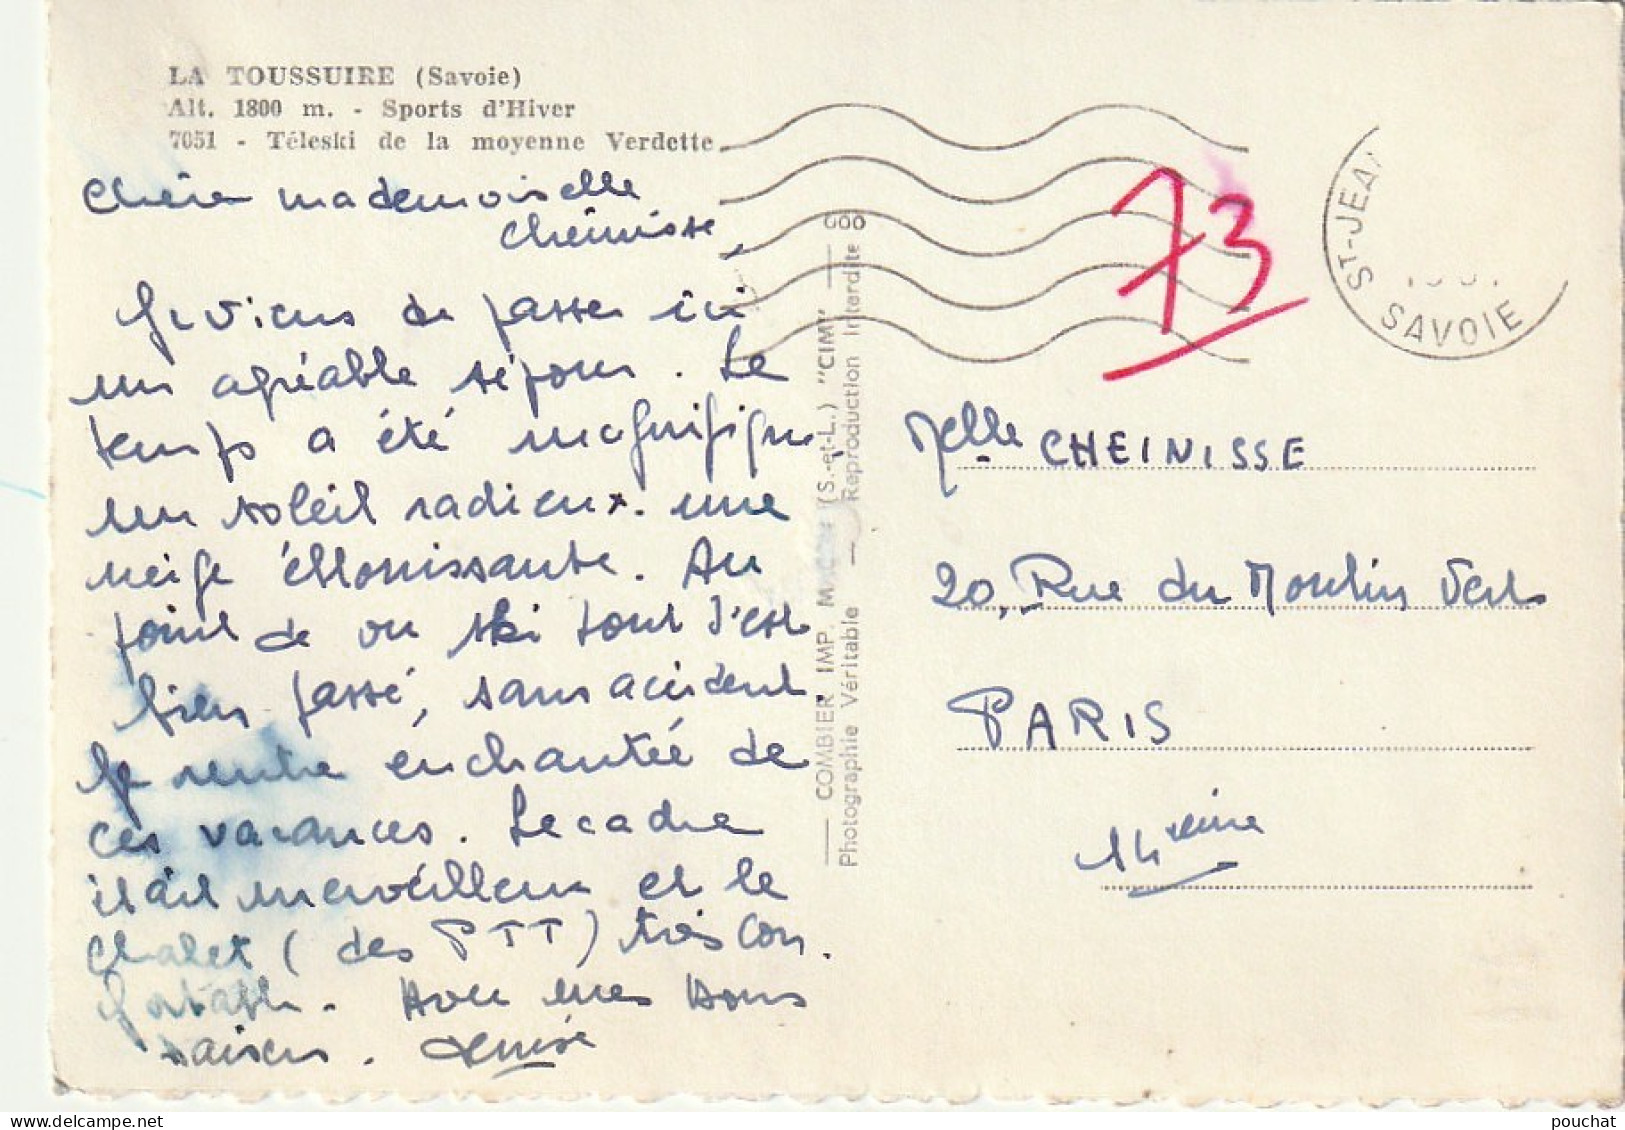 LA TOUSSUIRE (Savoie)
Alt. 1800 m. - Sports d'Hiver
7051 - Téleski de la moyenne Verdette
Chère mademoiselle
Cheinisse,
Je viens de passer ici
un agréable séjour. Le
temps a été magnifique
un soleil radieux. une
neige éblouissante. Au
point de vue ski tout s'est
bien passé, sans accident
Je rentre enchantée de
ces vacances. Le cadre
était merveilleux et le
chalet (des PTT) très con-
fortable. Avec mes bons
baisers. Denise
COMBIER IMP. MACON (S.-et-L.) "CIM"
Photographie Véritable — Reproduction Interdite
73
ST-JEAN
SAVOIE
Melle CHEINISSE
20, Rue du Moulin Vert
PARIS
14 ième
pouchat